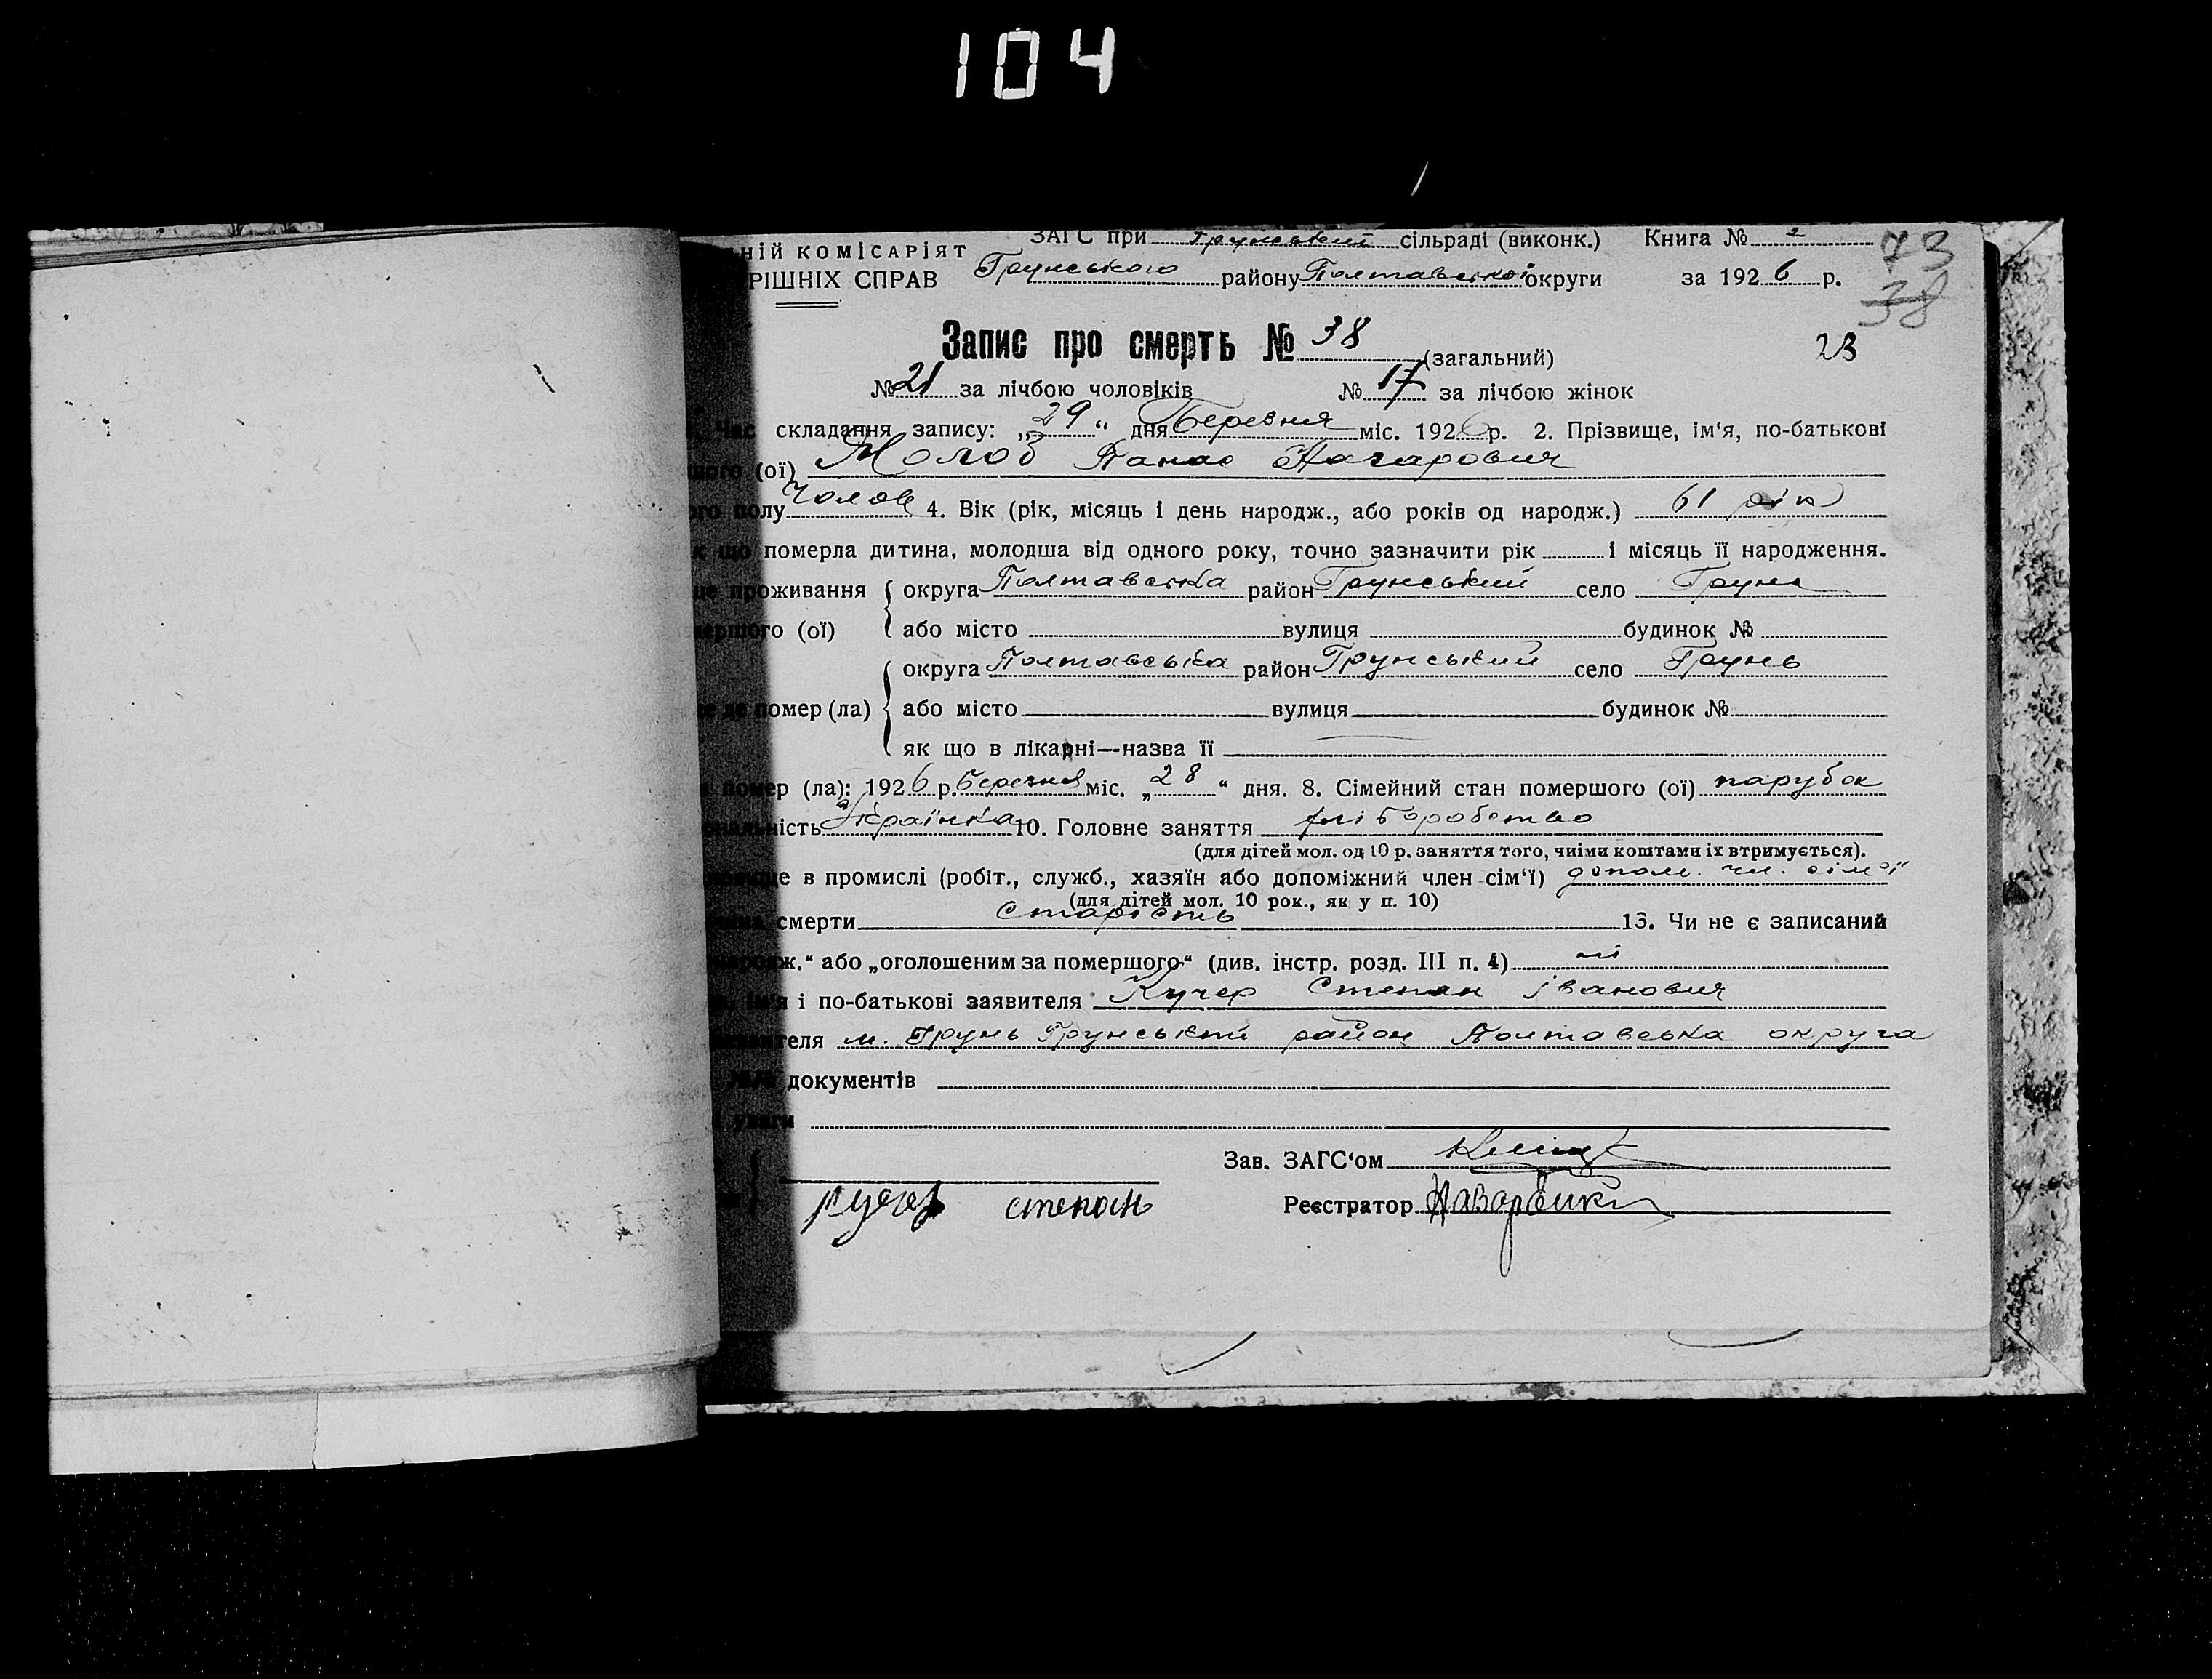 104
НІЙ КОМІСАРІЯТ
ЗАГС при Грунський сільраді (виконк.) Книга № 2
РІШНІХ СПРАВ
Грунського району Полтавської округи за 1926 р.
73
38
Запис про смерть № 38 (загальний)
23
№ 21 за лічбою чоловіків № 17 за лічбою жінок
Час складання запису: „29“ дня Березня міс. 1926 р. 2. Прізвище, ім‘я, по-батькові
шого (ої) Панас Назарович
ого полу Чолов 4. Вік (рік, місяць і день народж., або років од народж.) 61 рік
к що померла дитина, молодша від одного року, точно зазначити рік і місяць її народження.
це проживання округа Полтавська район Грунський село Грунь
мершого (ої) або місто вулиця будинок №
округа Полтавська район Грунський село Грунь
е де помер (ла) або місто вулиця будинок №
як що в лікарні—назва її
помер (ла): 1926 р. Березня міс. „28“ дня. 8. Сімейний стан помершого (ої) парубок
ональність Українка 10. Головне заняття хліборобство
(для дітей мол. од 10 р. заняття того, чиїми коштами їх втримується).
овище в промислі (робіт., служб., хазяїн або допоміжний член сім‘ї) допом. чл. сім'ї
(для дітей мол. 10 рок., як у п. 10)
смерти старість 13. Чи не є записаний
народж.“ або „оголошеним за помершого“ (див. інстр. розд. III п. 4) ні
ім‘я і по-батькові заявителя Кучер Степан Іванович
заявителя м. Грунь Грунський район Полтавська округа
документів
і уваги
Зав. ЗАГС‘ом
кучер степан
Реєстратор